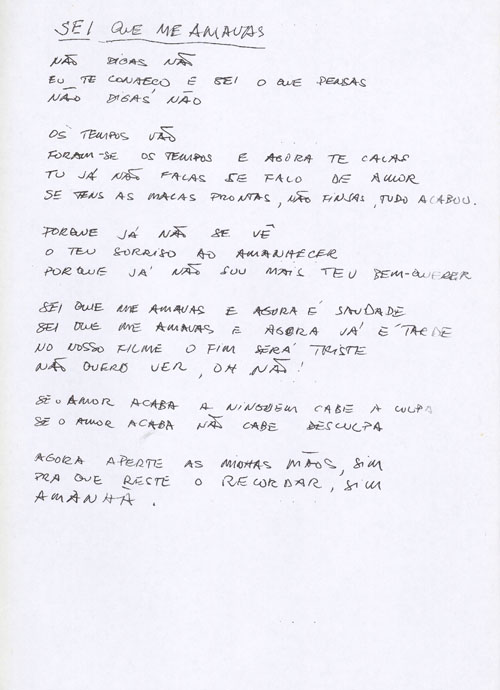 SEI QUE ME AMAVAS
NÃO DIGAS NÃO
EU TE CONHEÇO E SEI O QUE PENSAS
NÃO DIGAS NÃO
OS TEMPOS VÃO
FORAM-SE OS TEMPOS E AGORA TE CALAS
TU JÁ NÃO FALAS SE FALO DE AMOR
SE TENS AS MALAS PRONTAS, NÃO FINJAS, TUDO ACABOU.
PORQUE JÁ NÃO SE VÊ
O TEU SORRISO AO AMANHECER
PORQUE JÁ NÃO SOU MAIS TEU BEM-QUERER
SEI QUE ME AMAVAS E AGORA É SAUDADE
SEI QUE ME AMAVAS E AGORA JÁ É TARDE
NO NOSSO FILME O FIM SERÁ TRISTE
NÃO QUERO VER, OH NÃO!
SE O AMOR ACABA A NINGUÉM CABE A CULPA
SE O AMOR ACABA NÃO CABE DESCULPA
AGORA APERTE AS MINHAS MÃOS, SIM
PRA QUE RESTE O RECORDAR, SIM
AMANHÃ.